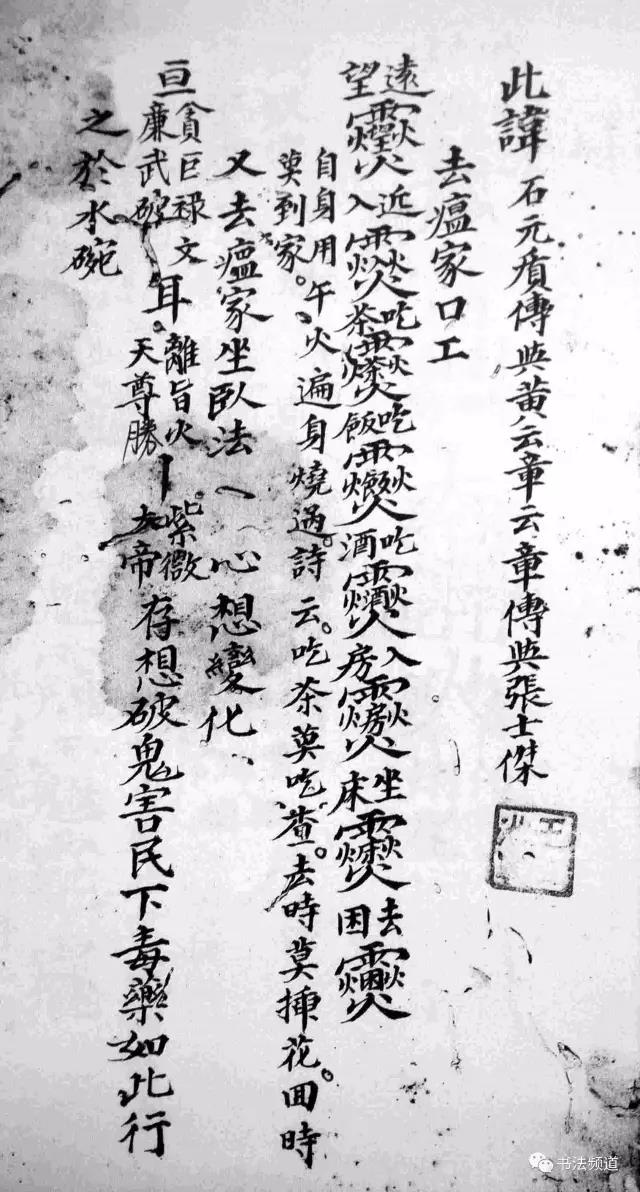 此諱 石元貭傳與黄云章云章傳與張士傑
去瘟家口工
遠望 近入 吃茶 吃飯 吃酒 入房 坐床 去困
自身用午火遍身燒過。詩云。吃茶莫吃渣。去時莫揷花。囬時
莫到家。
又去瘟家坐卧法 心想變化
亘貪巨禄文廉武破耳。離旨火天尊勝 紫微大帝存想破鬼害民下毒藥如此行
之於水碗
书法频道